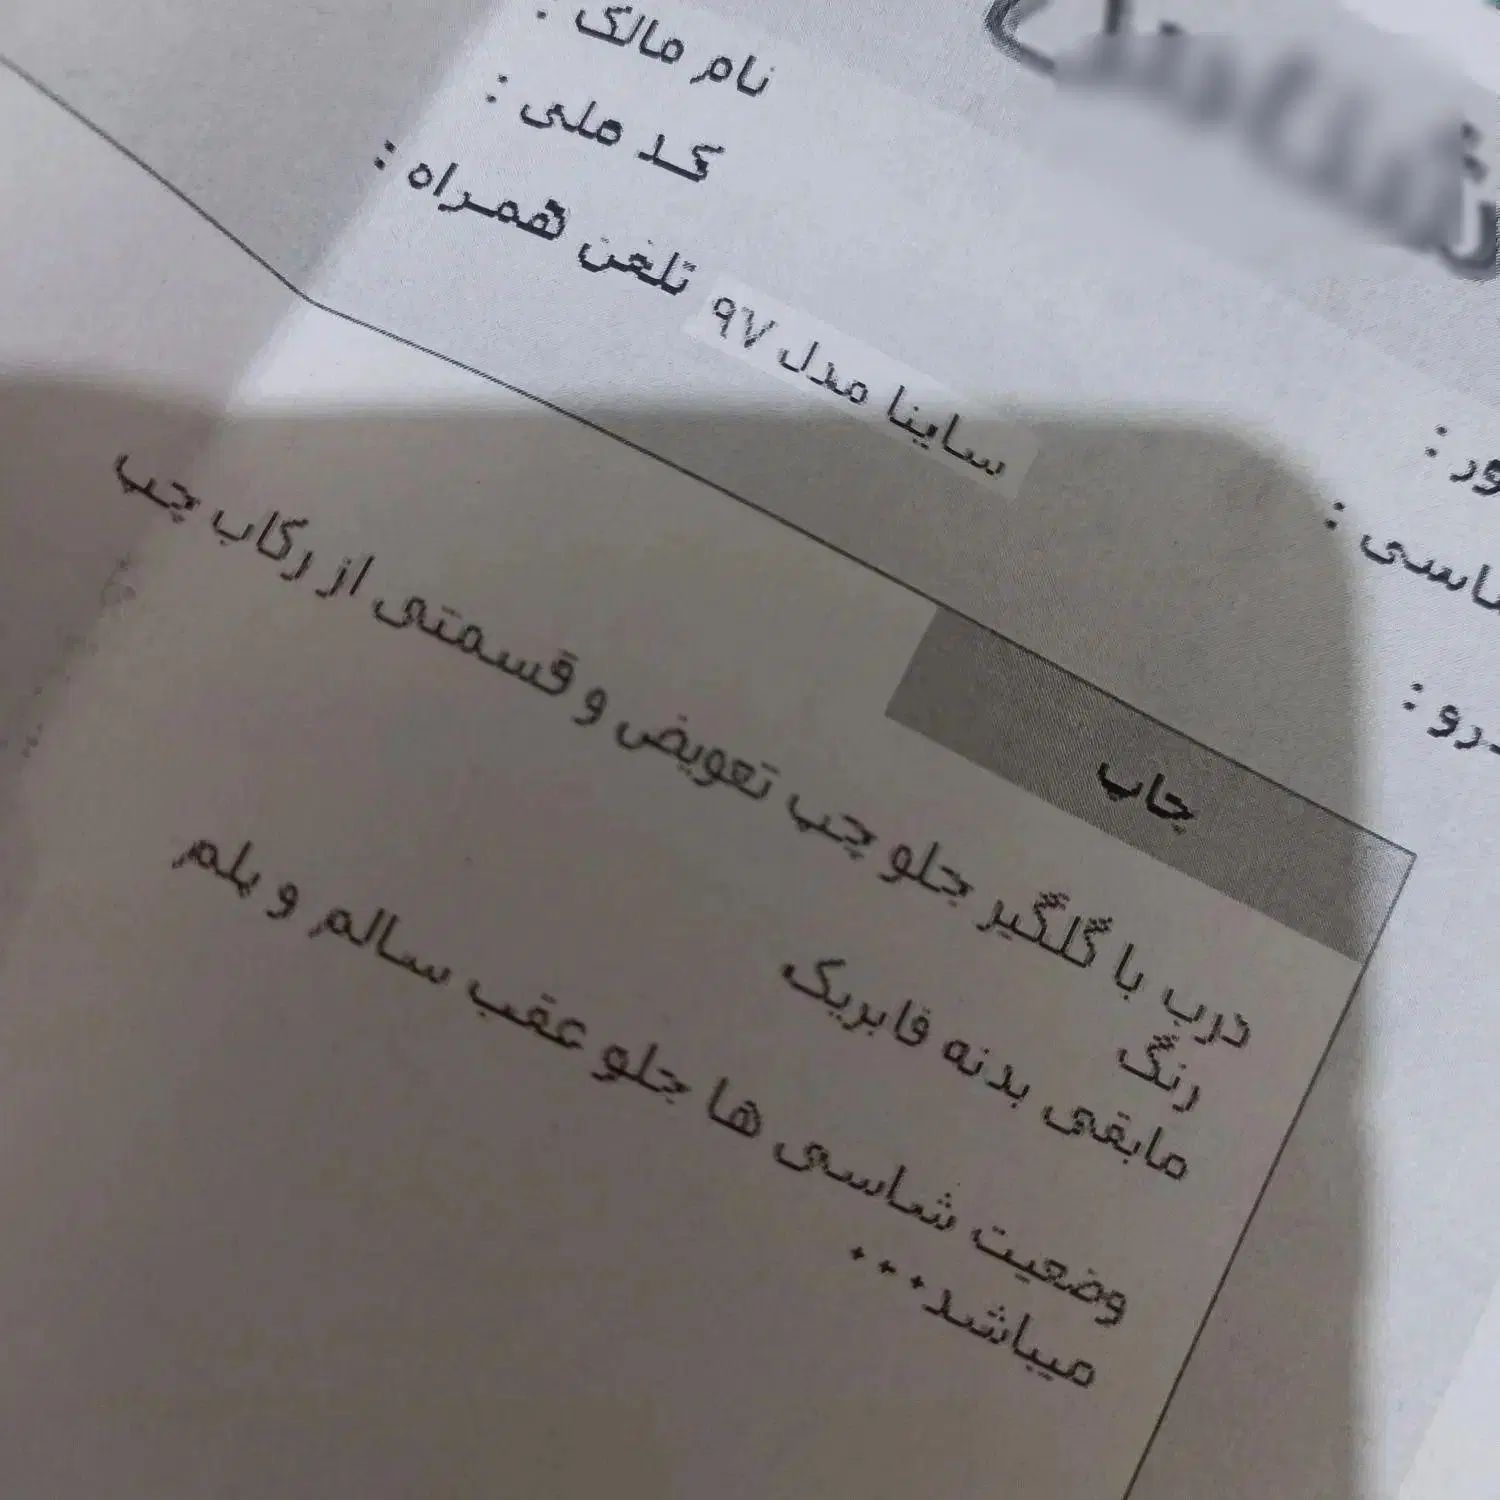 نام مالک :
کد ملی :
تلفن همراه :
ساینا مدل ۹۷
چاپ
درب با گلگیر جلو چپ تعویض و قسمتی از رکاب چپ
رنگ
مابقی بدنه فابریک
وضعیت شاسی ها جلو عقب سالم و پلم
میباشد...